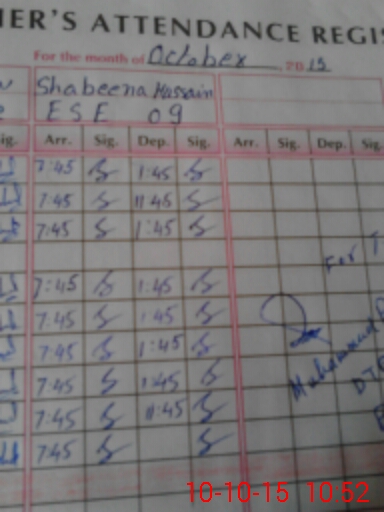 ER'S ATTENDANCE REGIS
For the month of October 2015
Shabeena Hassain
ESE 09
ig. Arr. Sig. Dep. Sig. Arr. Sig. Dep. Sig.
7:45 1:45
7:45 11:45
7:45 1:45
For T
7:45 1:45
7:45 1:45
7:45 1:45
Muhammad
7:45 1:45
DT
7:45 11:45
7:45
10-10-15 10:52